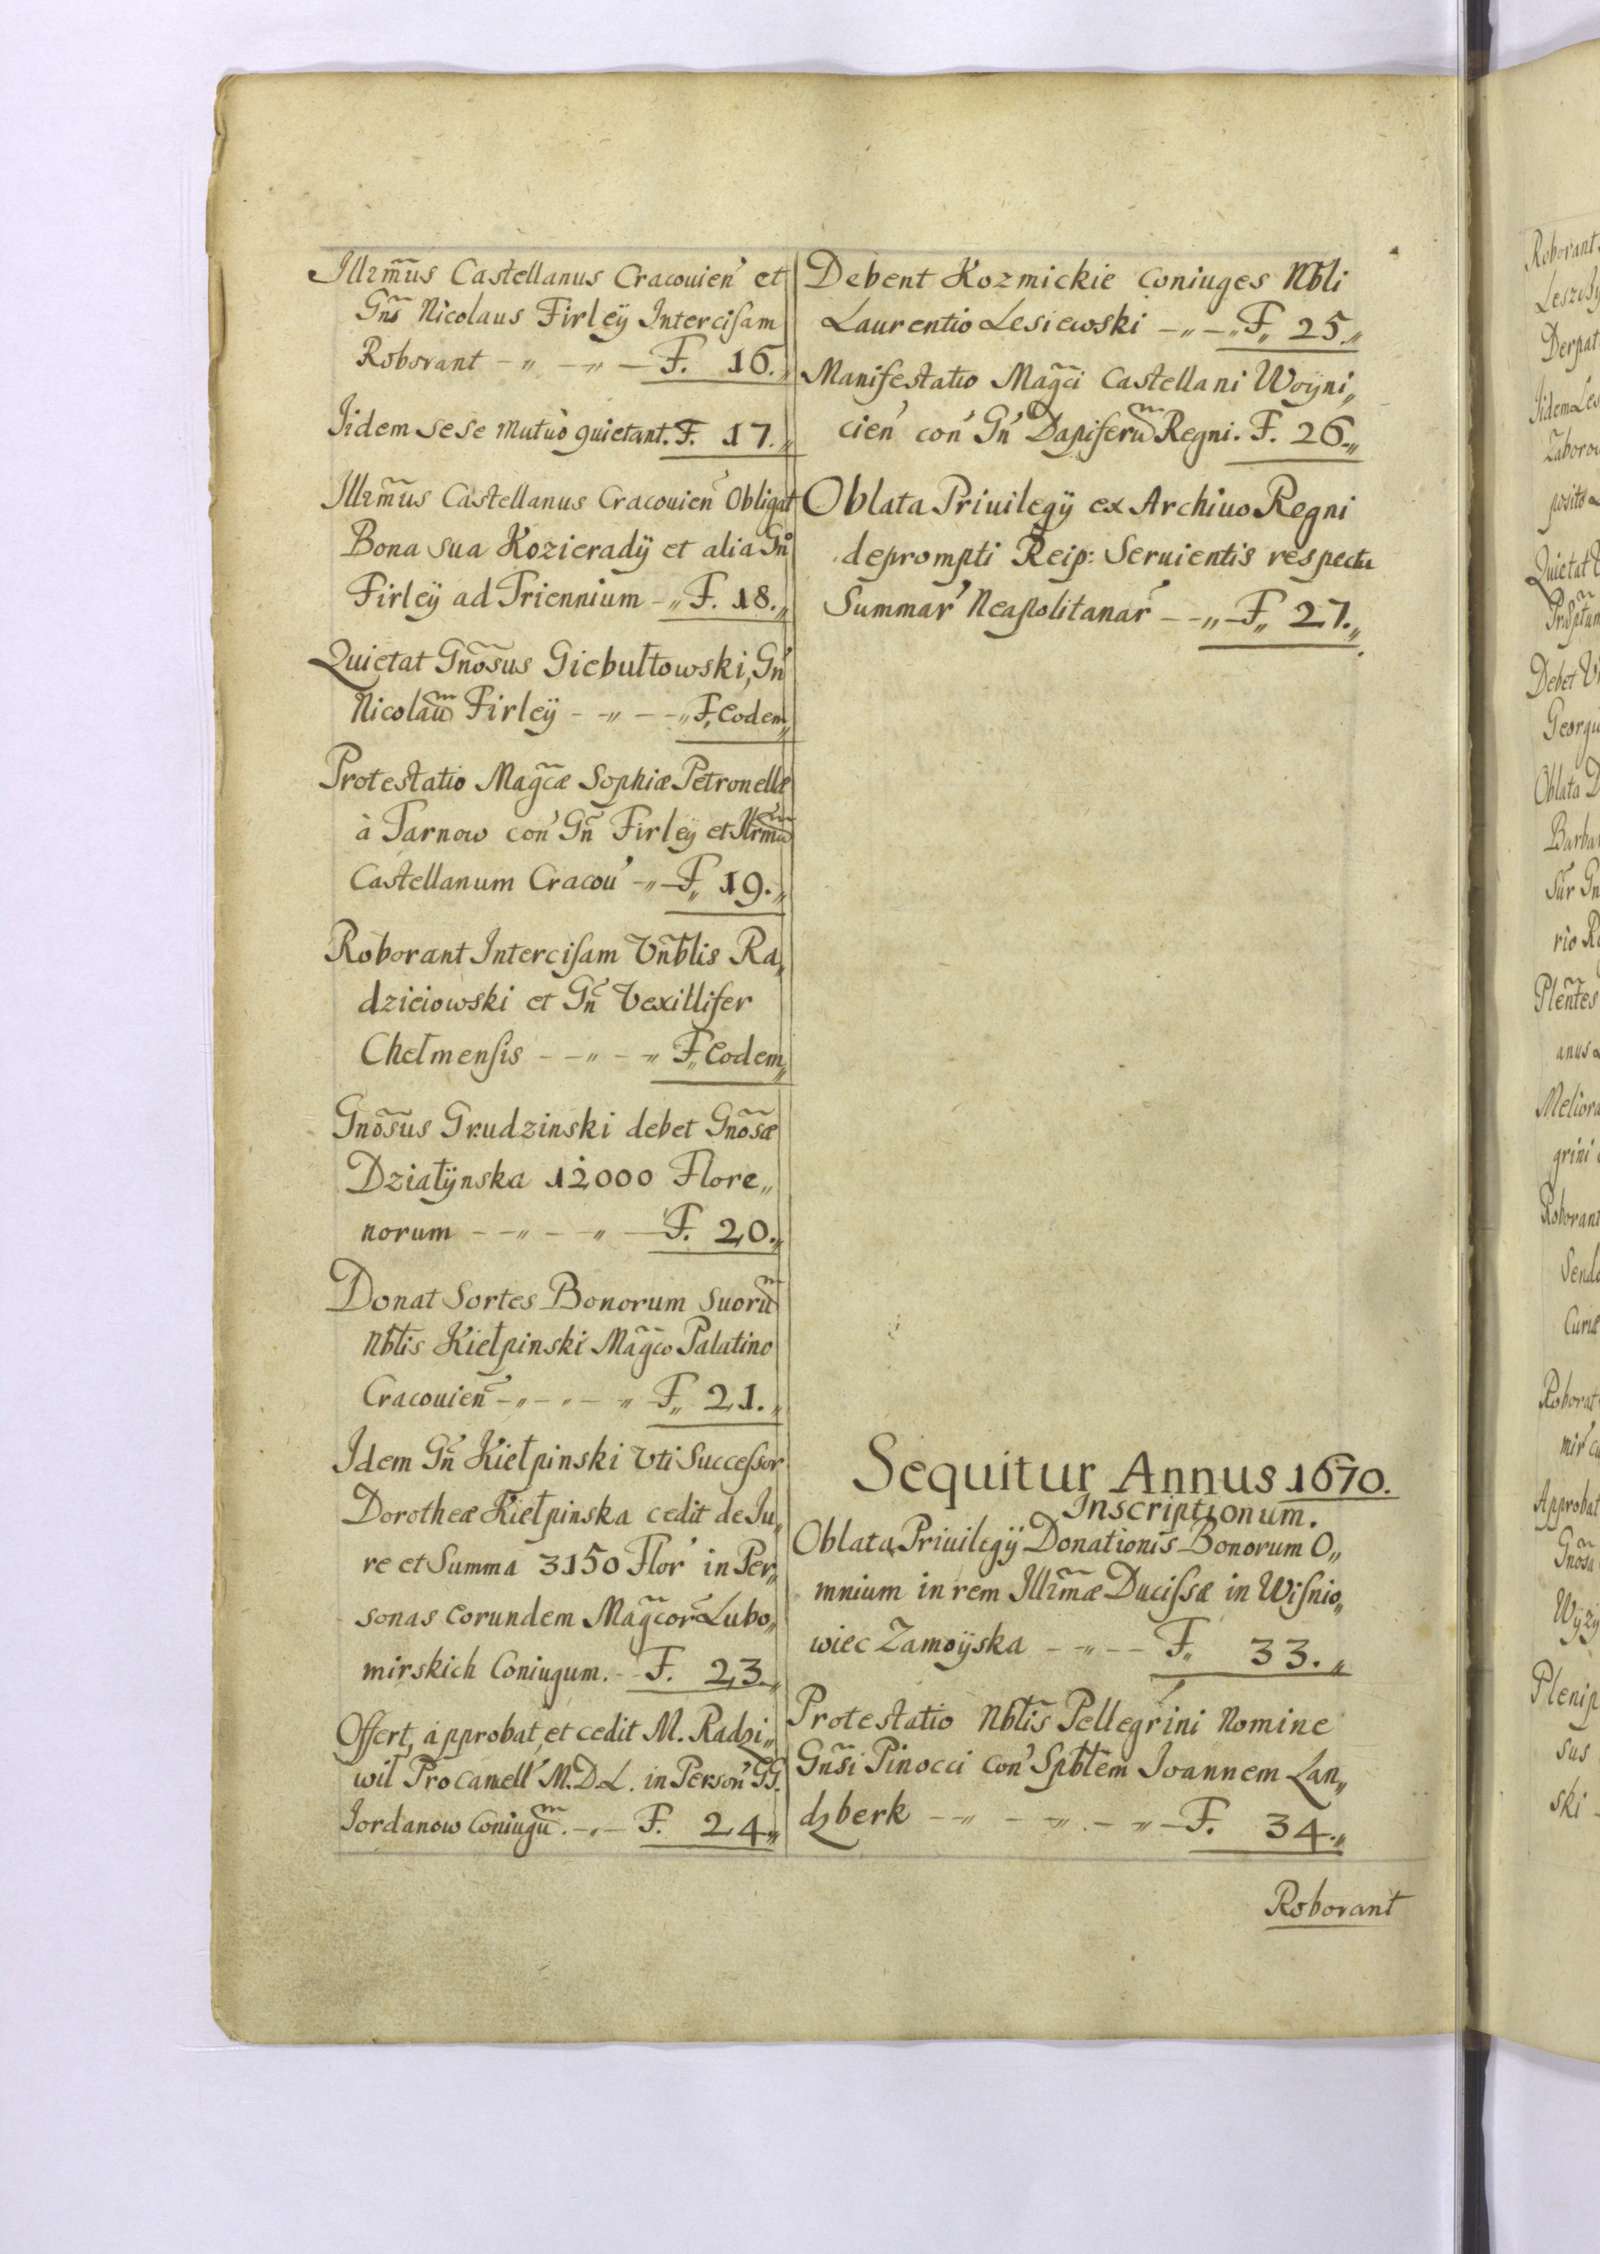 Illrm̃us Castellanus Cracouien̕ et
Gñs Nicolaus Firleÿ Intercisam
Roborant - „ - „ - F. 16.„
Iidem sese mutuò quietant. F. 17.„
Illrm̃us Castellanus Cracouien̕ Obligat
Bona sua Kozieradÿ et alia Gn̕
Firleÿ ad Triennium - „ F. 18.„
Quietat Gnõsus Giebułtowski, Gn̕
Nicolau᷉ Firleÿ - - „ - - „ F„ Eodem„
Protestatio Mag̃cæ Sophiæ Petronellæ
à Tarnow con̕ Gñ Firleÿ et Illrmu᷉
Castellanum Cracou̕ - „ - F„ 19.„
Roborant Intercisam Vñblis Ra„
dzieiowski et Gn̕ Vexillifer
Chełmensis - - „ - „ F„ Eodem„
Gnõsus Grudzinski debet Gnõsæ
Działÿnska 12000 Flore„
norum - - „ - „ - F. 20.„
Donat Sortes Bonorum Suoru᷉
Nbłis Kiełpinski Mag̃co Palatino
Cracouien̕ - „ - „ - „ F„ 21.„
Idem Gñ Kiełpinski Vti Successor
Dorotheæ Kiełpinska cedit de Iu„
re et Summa 3150 Flor̕ in Per„
sonas Eorundem Mag̃cor̕ Lubo„
mirskich Coniugum. - - F. 23.„
Offert, approbat, et cedit M. Radzi„
wil Procanell̕ M.D.L. in Person̕ GG.
Iordanow Coniugu᷉. - „ - F. 24„
Debent Kozmickie Coniuges Nbli
Laurentio Lesiewski - „ - „ F„ 25.„
Manifestatio Mag̃ci Castellani Woÿni„
cien̕ con̕ Gn̕ Dapiferu᷉ Regni. F. 26.„
Oblata Priuilegÿ ex Archiuo Regni
deprompti Reip: Seruientis respectu
Summar̕ Neapolitanar̕ - - „ - F„ 27.„
Sequitur Annus 1670.
Inscriptionum.
Oblata Priuilegÿ Donationis Bonorum O„
mnium in rem Illrm̃æ Ducissæ in Wisnio„
wiec Zamoÿska - - „ - - F„ 33.„
Protestatio Nbłis Pellegrini Nomine
Gnsĩ Pinocci con̕ Spbłem Ioannem Lan„
dzberk - „ - „ - „ - F. 34.„
Roborant